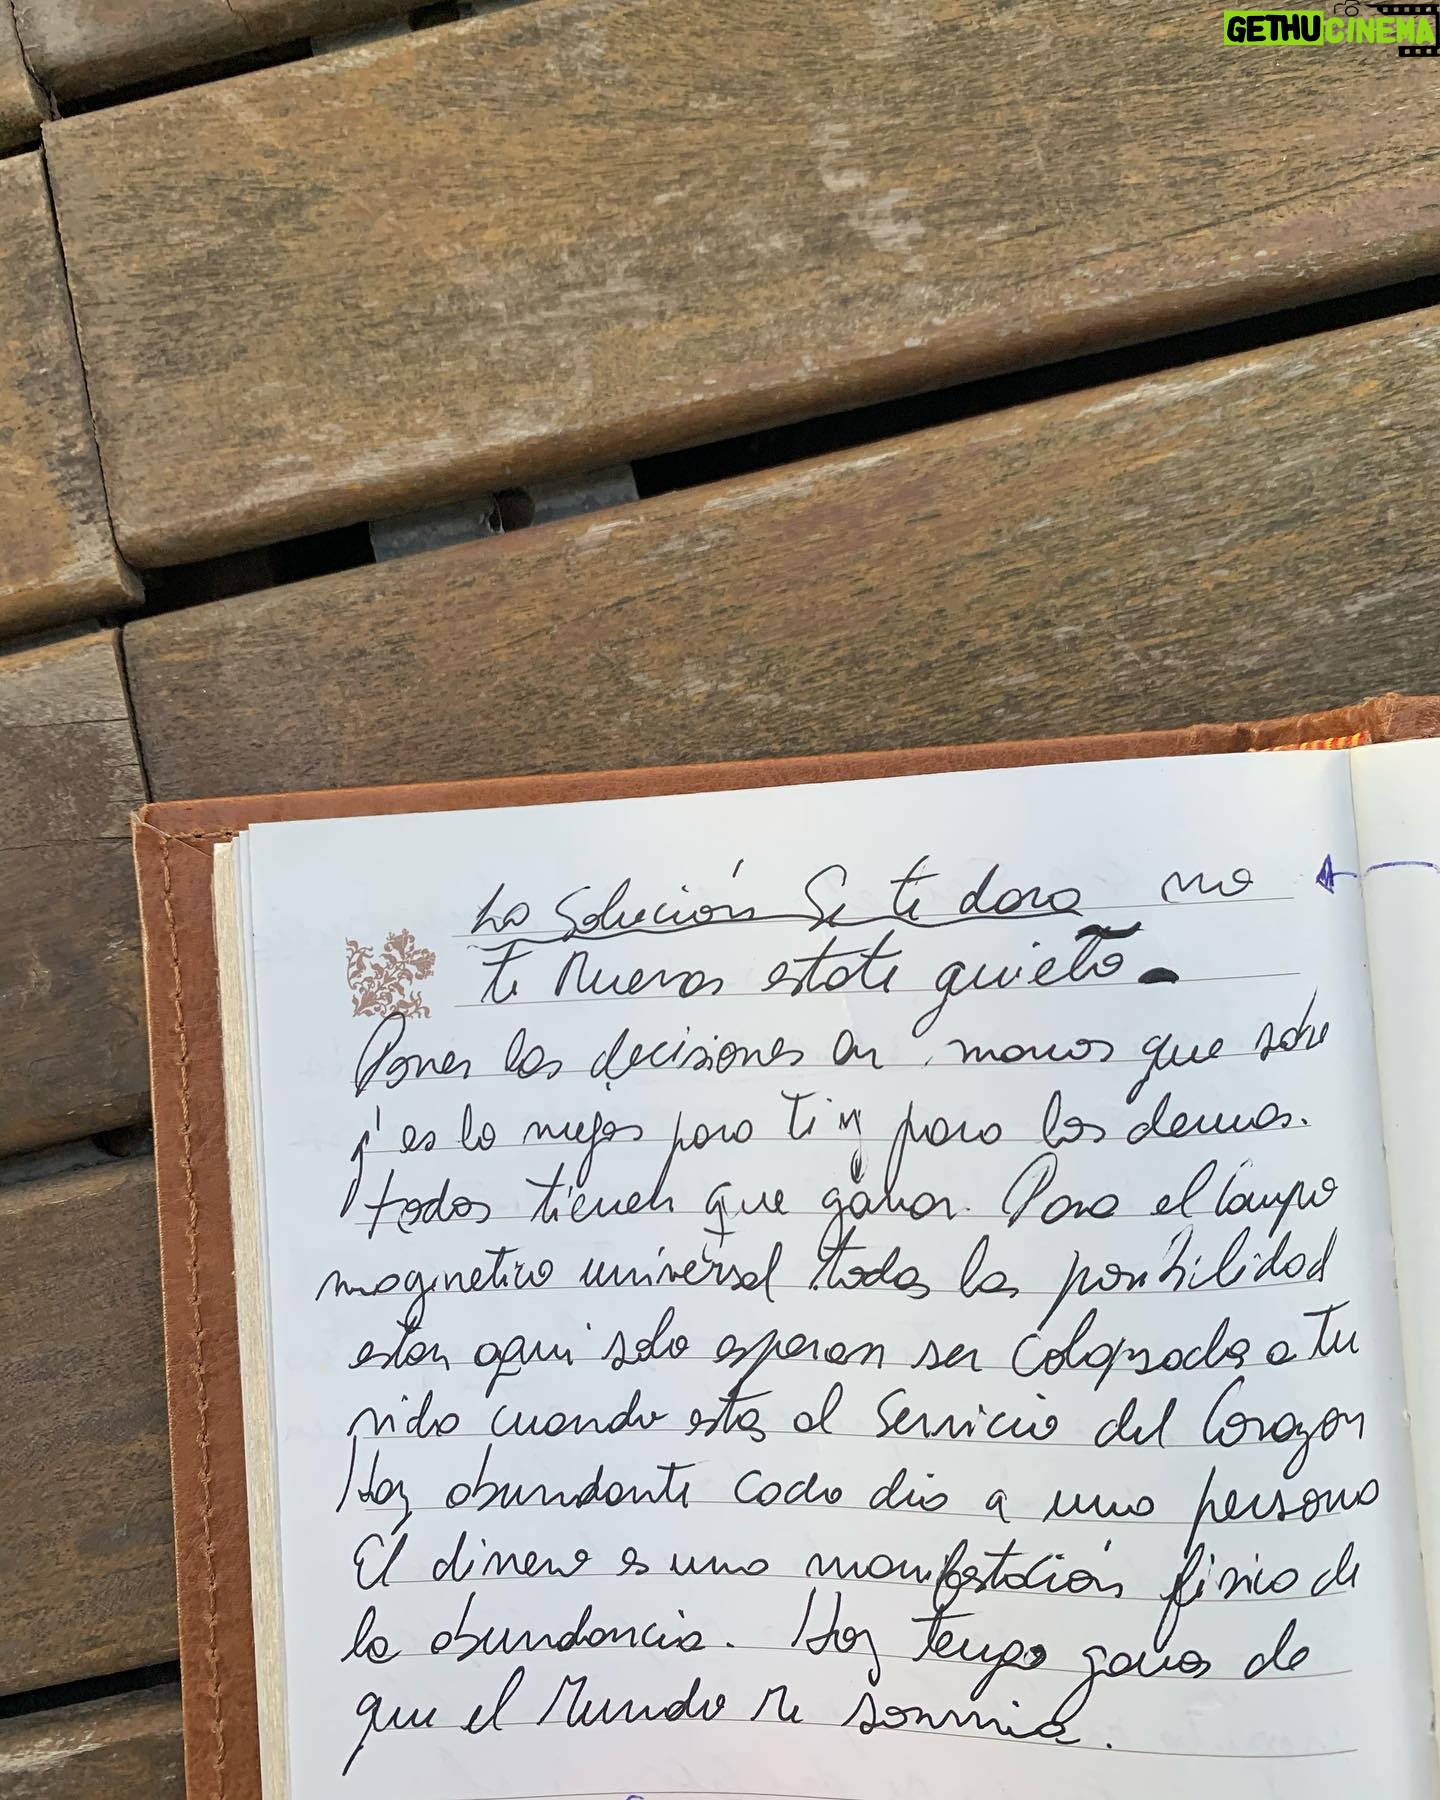 GETHUCINEMA
La Solución Se te dara no
te muevas estate quieto.
Pones las decisiones en manos que sabe
q' es lo mejor para ti y para los demas.
todos tienen que ganar. Para el campo
magnetico universal todas las posibilidad
estan aqui solo esperan ser colapsada a tu
vida cuando estas al servicio del Corazon
Haz abundante cada dia a una persona
El dinero es una manifestación fisica de
la abundancia. Hoy tengo ganas de
que el Mundo me sonria.